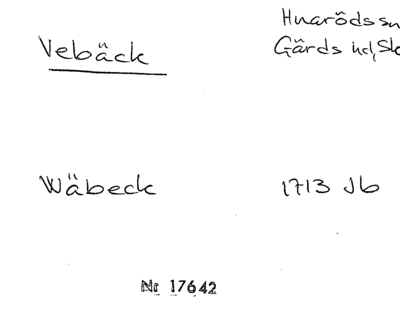 Huaröds sn
Vebäck Gärds hd, Sk
Wäbeck 1713 Jb
Nr 17642